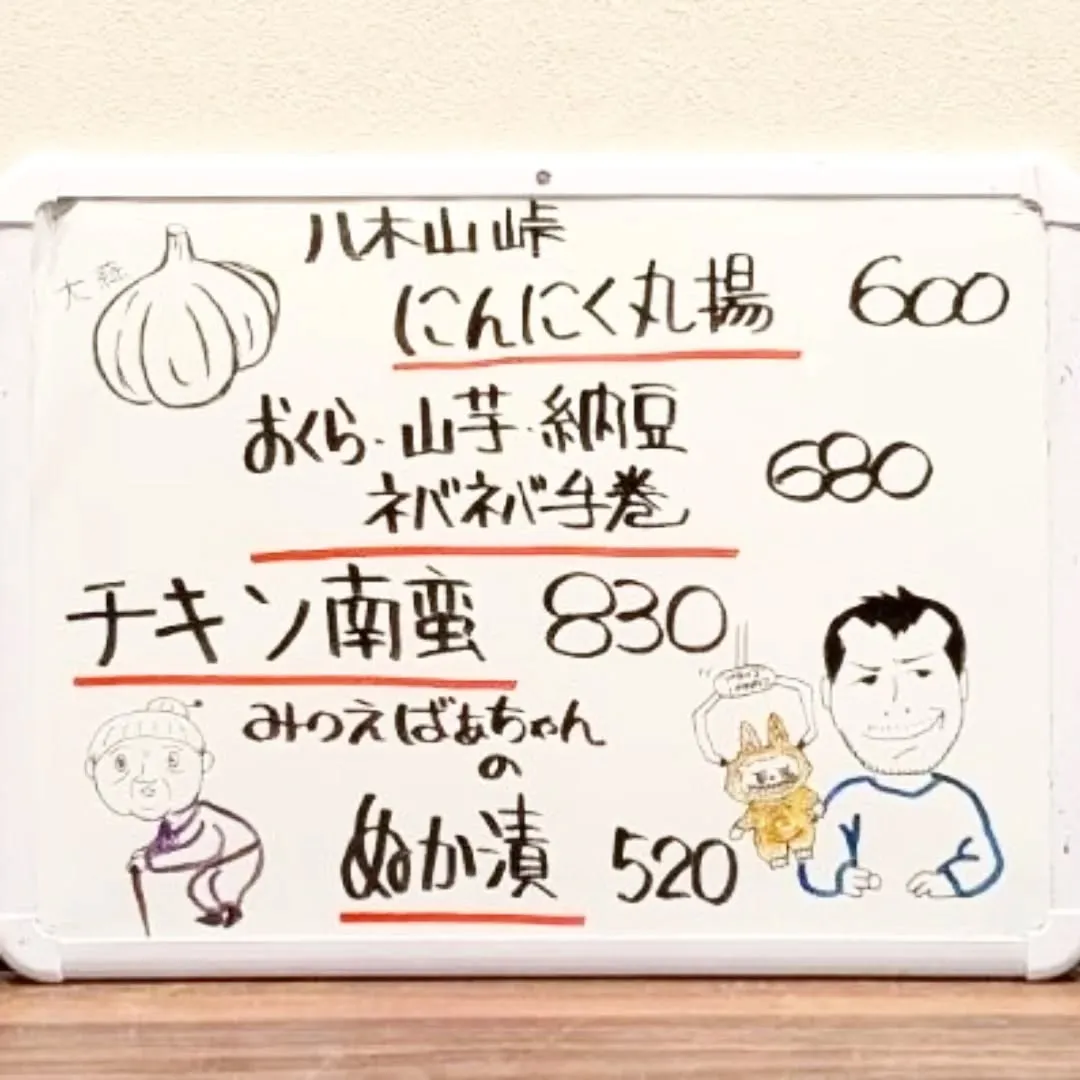 八木山峠
にんにく丸揚 600
おくら・山芋・納豆
ネバネバ手巻 680
チキン南蛮 830
みつえばぁちゃん
の
ぬか漬 520